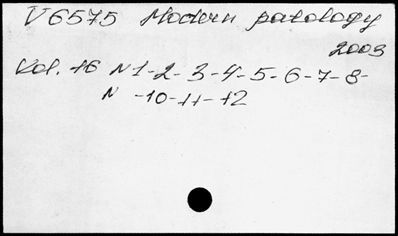 V6575 Modern patology
2003
Vol. 16 N1-2-3-4-5-6-7-8-
N -10-11-12